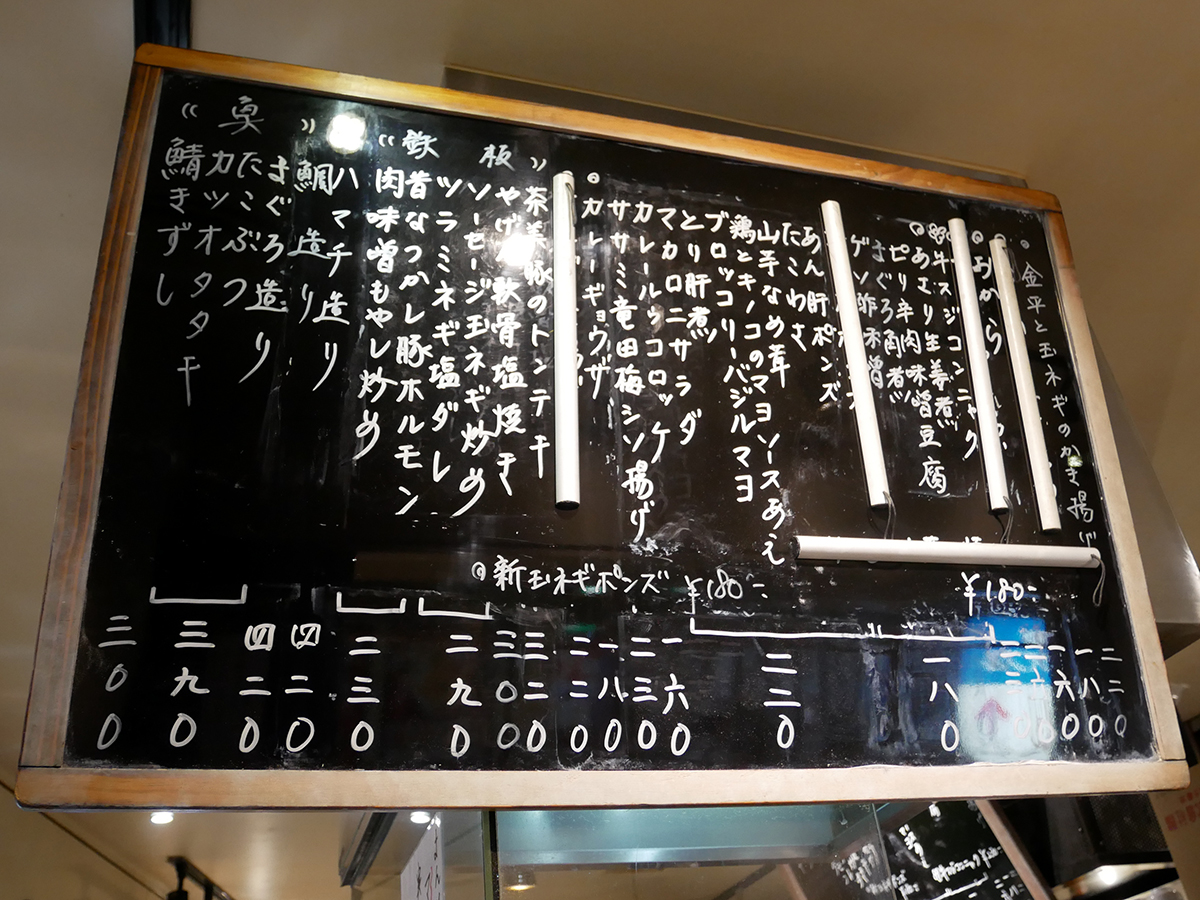 金平と玉ネギのかき揚げ
おから
牛スジコンニャク
あユリ生姜煮
ピリ辛肉味噌豆腐
まぐろ角煮
ゲソ酢味噌
あん肝ポンズ
たこわさ
山芋なめ茸
鶏とキノコのマヨソースあえ
ブロッコリーバジルマヨ
とり肝煮
マカロニサラダ
カレールゥコロッケ
ササミ竜田梅シソ揚げ
カレーギョウザ
新玉ネギポンズ ¥180-
¥180-
《鉄板》
茶美豚のトンテキ
やげん軟骨塩焼き
ソーセージ玉ネギ炒め
ツラミネギ塩ダレ
昔なつかし豚ホルモン
肉味噌もやし炒め
《魚》
ハマチ造り
鯛造り
まぐろ造り
たこぶつ
カツオタタキ
鯖きずし
二二0
一八0
一六0
一八0
二二0
一六0
二三0
一八0
二二0
三二0
三00
二九0
二三0
四二0
四二0
三九0
三00